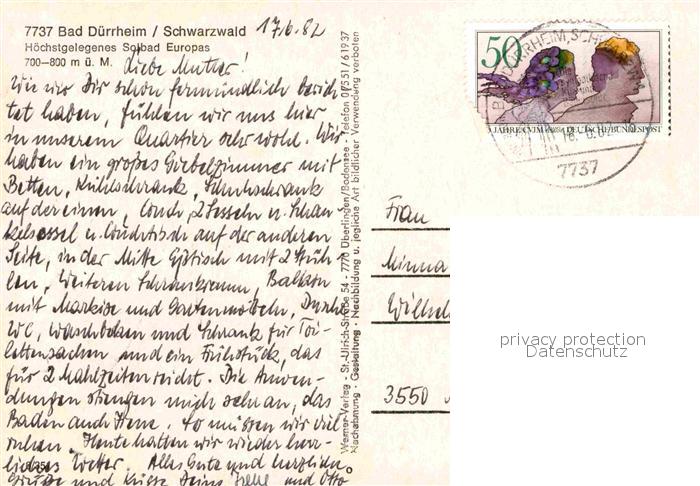 7737 Bad Dürrheim / Schwarzwald
Höchstgelegenes Solbad Europas
700–800 m ü. M.
17.6.82
Liebe Mutter!
Wie wir Dir schon fernmündlich berich-
tet haben, fühlen wir uns hier
in unserem Quartier sehr wohl. Wir
haben ein großes Giebelzimmer mit
Betten, Kühlschrank, Schuhschrank
auf der einen, Couch, 2 Sesseln u. Schau-
kelsessel u. Couchtisch auf der anderen
Seite, in der Mitte Eßtisch mit 2 Stüh-
len, weiteren Schrankraum, Balkon
mit Markise und Gartenmöbeln, Dusche
WC, Waschbecken und Schrank für Toi-
lettensachen und ein Frühstück, das
für 2 Mahlzeiten reicht. Die Anwen-
dungen strengen mich sehr an, das
Baden auch Irene. So müssen wir viel
ruhen. Heute hatten wir wieder herr-
liches Wetter. Alles Gute und herzliche
Grüße und Küsse Deine und Otto
Werner-Verlag - St.-Ulrich-Straße 54 - 7770 Überlingen/Bodensee - Telefon 07551/61937
Nachahmung - Gestaltung - Nachbildung u. jegliche Art bildlicher Verwendung verboten
50
JAHRE CVJM DEUTSCHE BUNDESPOST
BAD DÜRRHEIM, SCHW
7737
Frau
Minna
Wilhelm
3550
privacy protection
Datenschutz